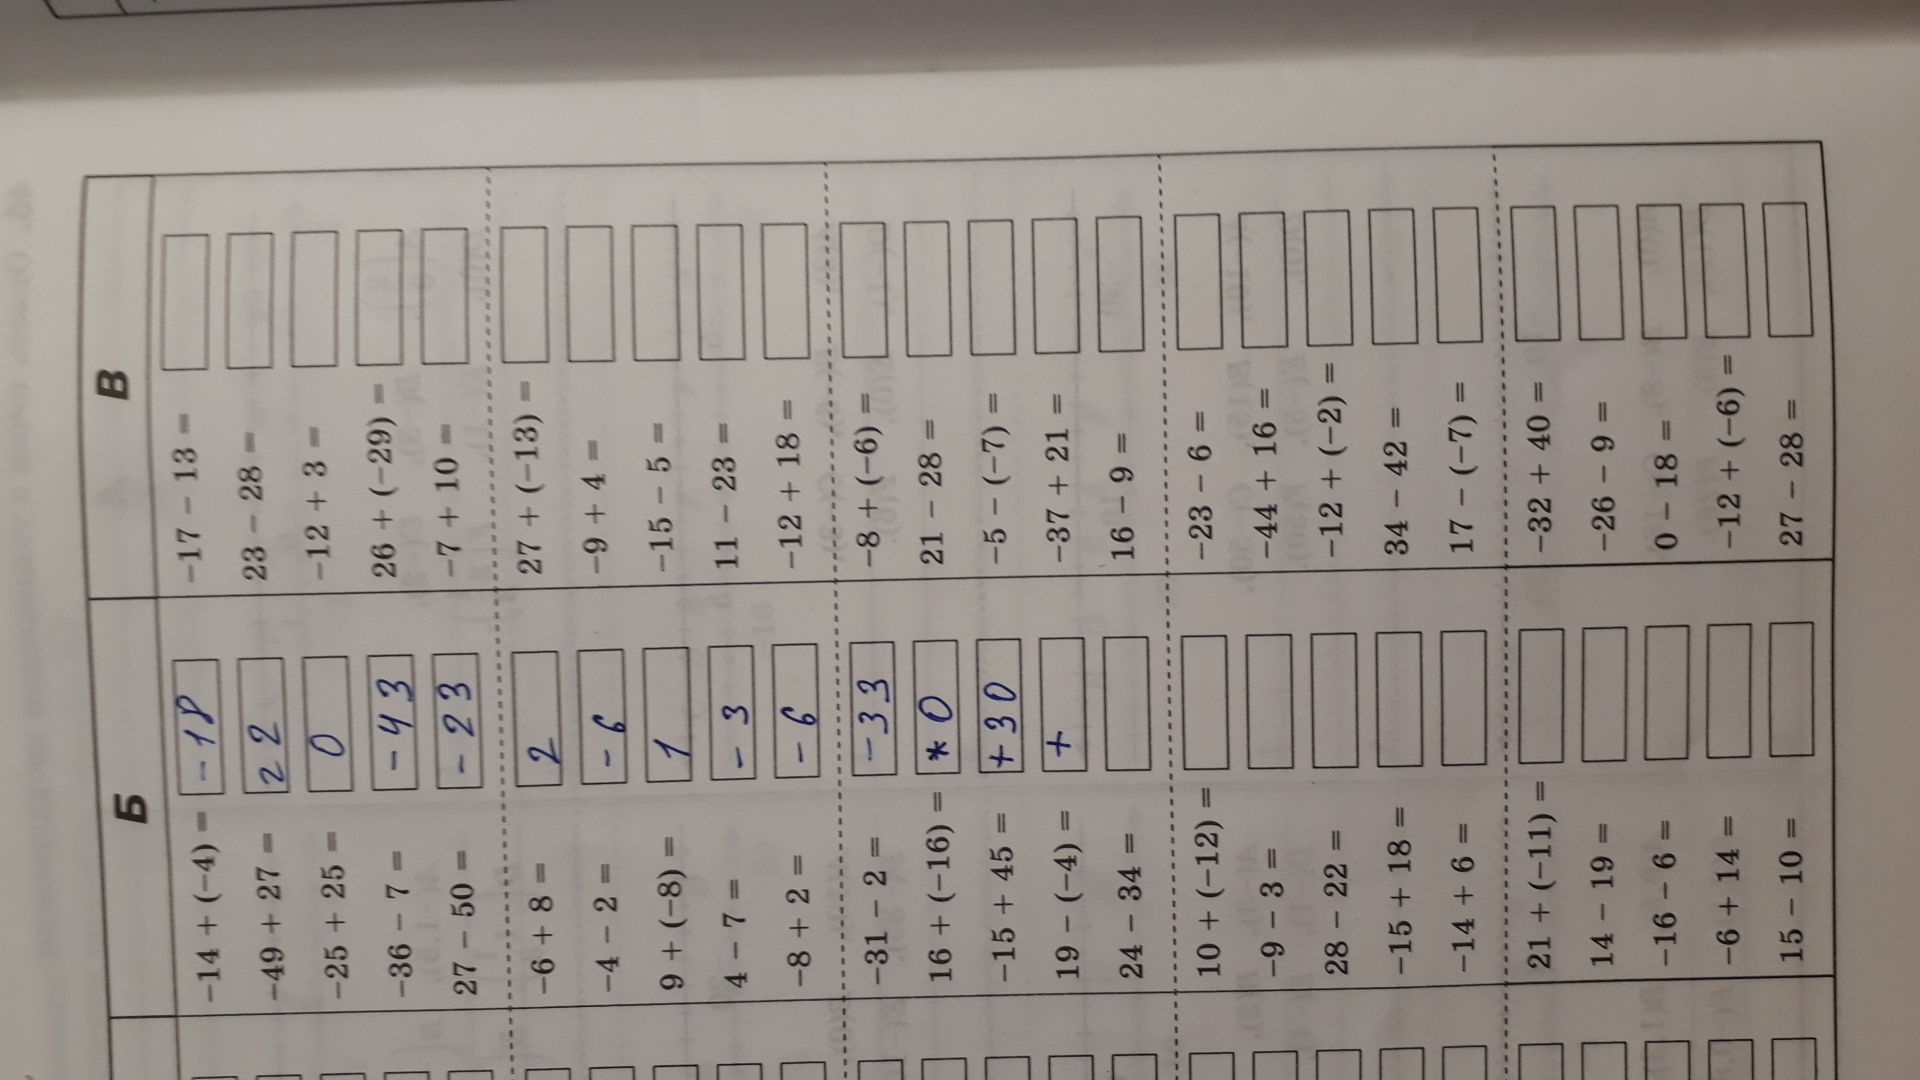 Б
-14 + (-4) = -18
-49 + 27 = 22
-25 + 25 = 0
-36 - 7 = -43
27 - 50 = -23
-6 + 8 = 2
-4 - 2 = -6
9 + (-8) = 1
4 - 7 = -3
-8 + 2 = -6
-31 - 2 = -33
16 + (-16) = *0
-15 + 45 = +30
19 - (-4) = +
24 - 34 =
10 + (-12) =
-9 - 3 =
28 - 22 =
-15 + 18 =
-14 + 6 =
21 + (-11) =
14 - 19 =
-16 - 6 =
-6 + 14 =
15 - 10 =
В
-17 - 13 =
23 - 28 =
-12 + 3 =
26 + (-29) =
-7 + 10 =
27 + (-13) =
-9 + 4 =
-15 - 5 =
11 - 23 =
-12 + 18 =
-8 + (-6) =
21 - 28 =
-5 - (-7) =
-37 + 21 =
16 - 9 =
-23 - 6 =
-44 + 16 =
-12 + (-2) =
34 - 42 =
17 - (-7) =
-32 + 40 =
-26 - 9 =
0 - 18 =
-12 + (-6) =
27 - 28 =